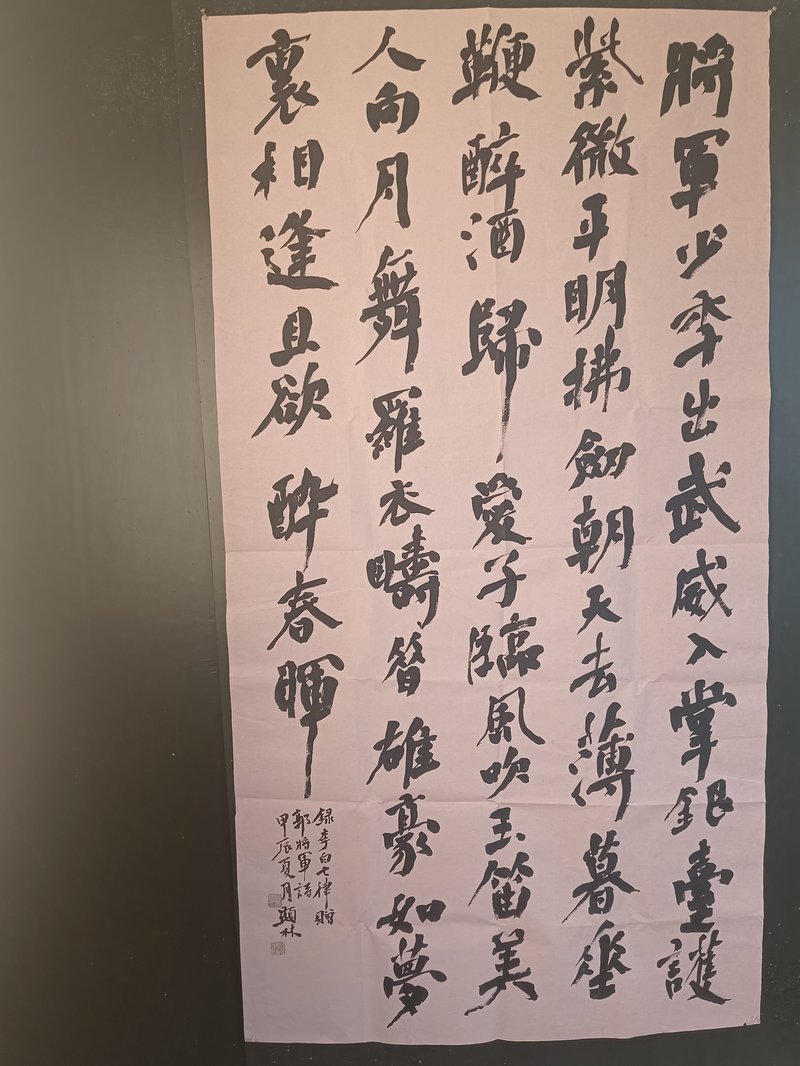 將軍少秊出武威入掌銀臺護
紫微平明拂劍朝天去薄暮垂
鞭醉酒歸愛子臨風吹玉笛美
人向月舞羅衣疇昔雄豪如夢
裏相逢且欲酔春暉
録李白七律贈
郭將軍詩
甲辰夏月顯林